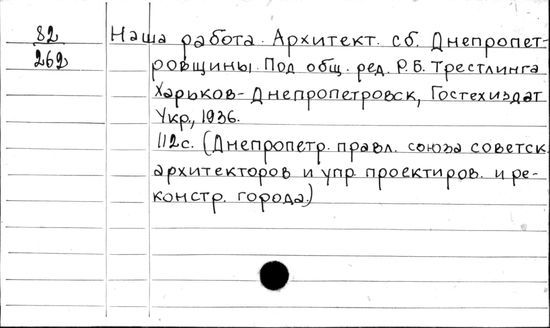 82
262
Наша работа. Архитект. сб. Днепропет-
ровщины. Под общ. ред. Р.Б. Трестлинга
Харьков-Днепропетровск, Гостехиздат
Укр., 1936.
112с. (Днепропетр. правл. союза советск.
архитекторов и упр. проектиров. и ре-
констр. города.)